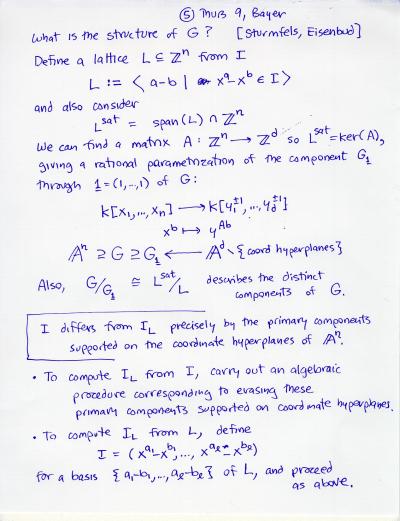 ⑤ Thurs 9, Bayer
What is the structure of G? [Sturmfels, Eisenbud]
Define a lattice L ⊆ ℤⁿ from I
L := < a-b | xᵃ-xᵇ ∈ I >
and also consider
Lˢᵃᵗ = span(L) ∩ ℤⁿ
We can find a matrix A: ℤⁿ → ℤᵈ so Lˢᵃᵗ = ker(A),
giving a rational parametrization of the component G₁
through 1 = (1,..,1) of G:
k[x₁,..., xₙ] → k[y₁^±1,..., y_d^±1]
xᵇ ↦ y^Ab
𝔸ⁿ ⊇ G ⊇ G₁ ← 𝔸ᵈ \ {coord hyperplanes}
Also, G/G₁ ≅ Lˢᵃᵗ/L describes the distinct
components of G.
I differs from I_L precisely by the primary components
supported on the coordinate hyperplanes of 𝔸ⁿ.
• To compute I_L from I, carry out an algebraic
procedure corresponding to erasing these
primary components supported on coordinate hyperplanes.
• To compute I_L from L, define
I = (x^a₁-x^b₁,..., x^aₑ-x^bₑ)
for a basis {a₁-b₁,..., aₑ-bₑ} of L, and proceed
as above.